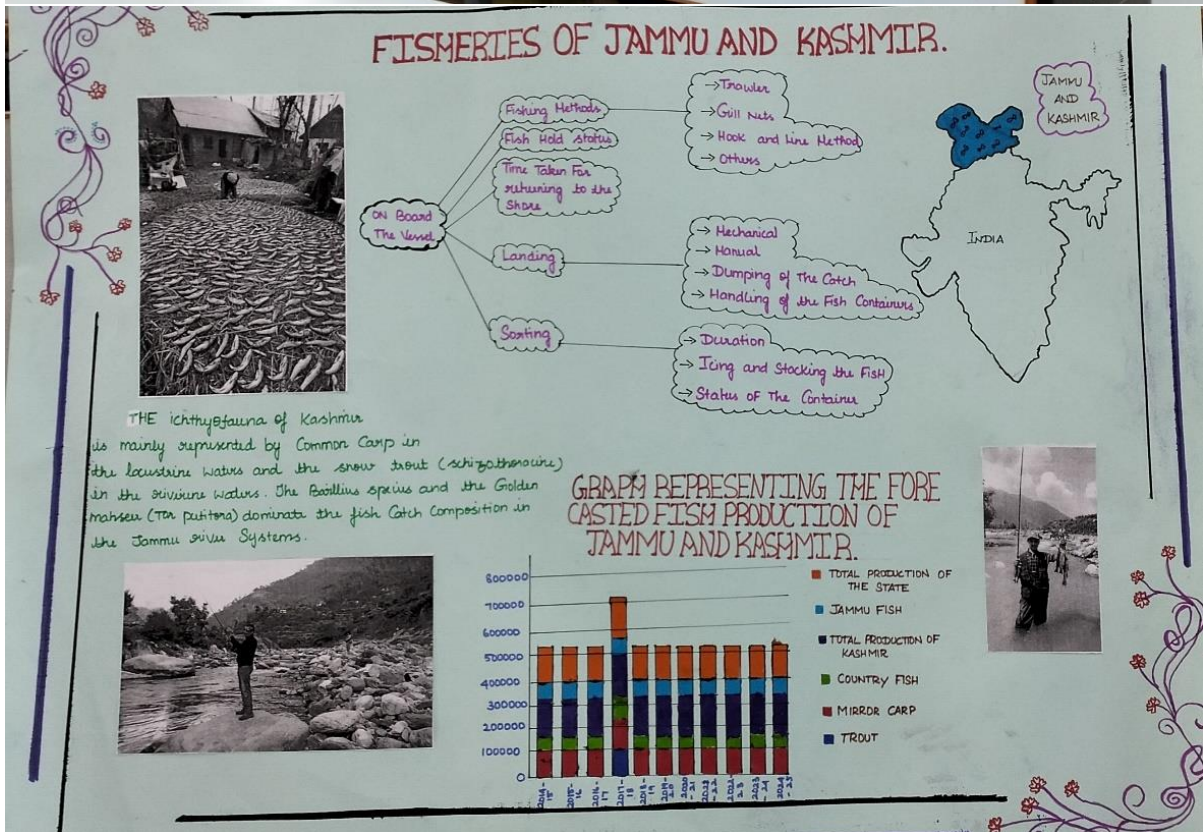 FISHERIES OF JAMMU AND KASHMIR.
ON Board
The Vessel
Fishing Methods
Fish Hold status
Time Taken For
returning to the
Shore
Landing
Sorting
→Trawler
→Gill Nets
→Hook and Line Method
→Others
→Mechanical
→Manual
→Dumping of The Catch
→Handling of the Fish Containers
→Duration
→Icing and Stocking the Fish
→Status of The Container
JAMMU
AND
KASHMIR
INDIA
THE ichthyofauna of Kashmir
is mainly represented by Common Carp in
the lacustrine waters and the snow trout (schizothoracine)
in the riverine waters. The Barilius and the Golden
mahseer (Tor putitora) dominate the fish Catch Composition in
the Jammu river Systems.
GRAPH REPRESENTING THE FORE
CASTED FISH PRODUCTION OF
JAMMU AND KASHMIR.
800000
700000
600000
500000
400000
300000
200000
100000
0
2014-15
2015-16
2016-17
2017-18
2018-19
2019-20
2020-21
2022-23
2023-24
2024-25
TOTAL PRODUCTION OF
THE STATE
JAMMU FISH
TOTAL PRODUCTION OF
KASHMIR
COUNTRY FISH
MIRROR CARP
TROUT